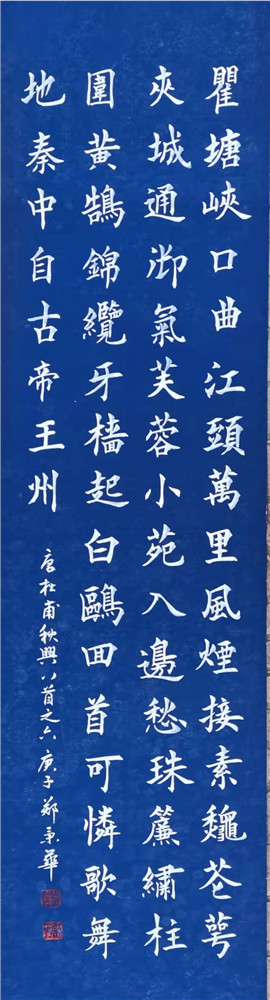 瞿塘峽口曲江頭萬里風煙接素龝芲萼
夾城通御氣芙蓉小苑入邊愁珠簾繡柱
圍黃鵠錦纜牙檣起白鷗囬首可憐歌舞
地秦中自古帝王州
唐杜甫秋興八首之六庚子鄭秉華